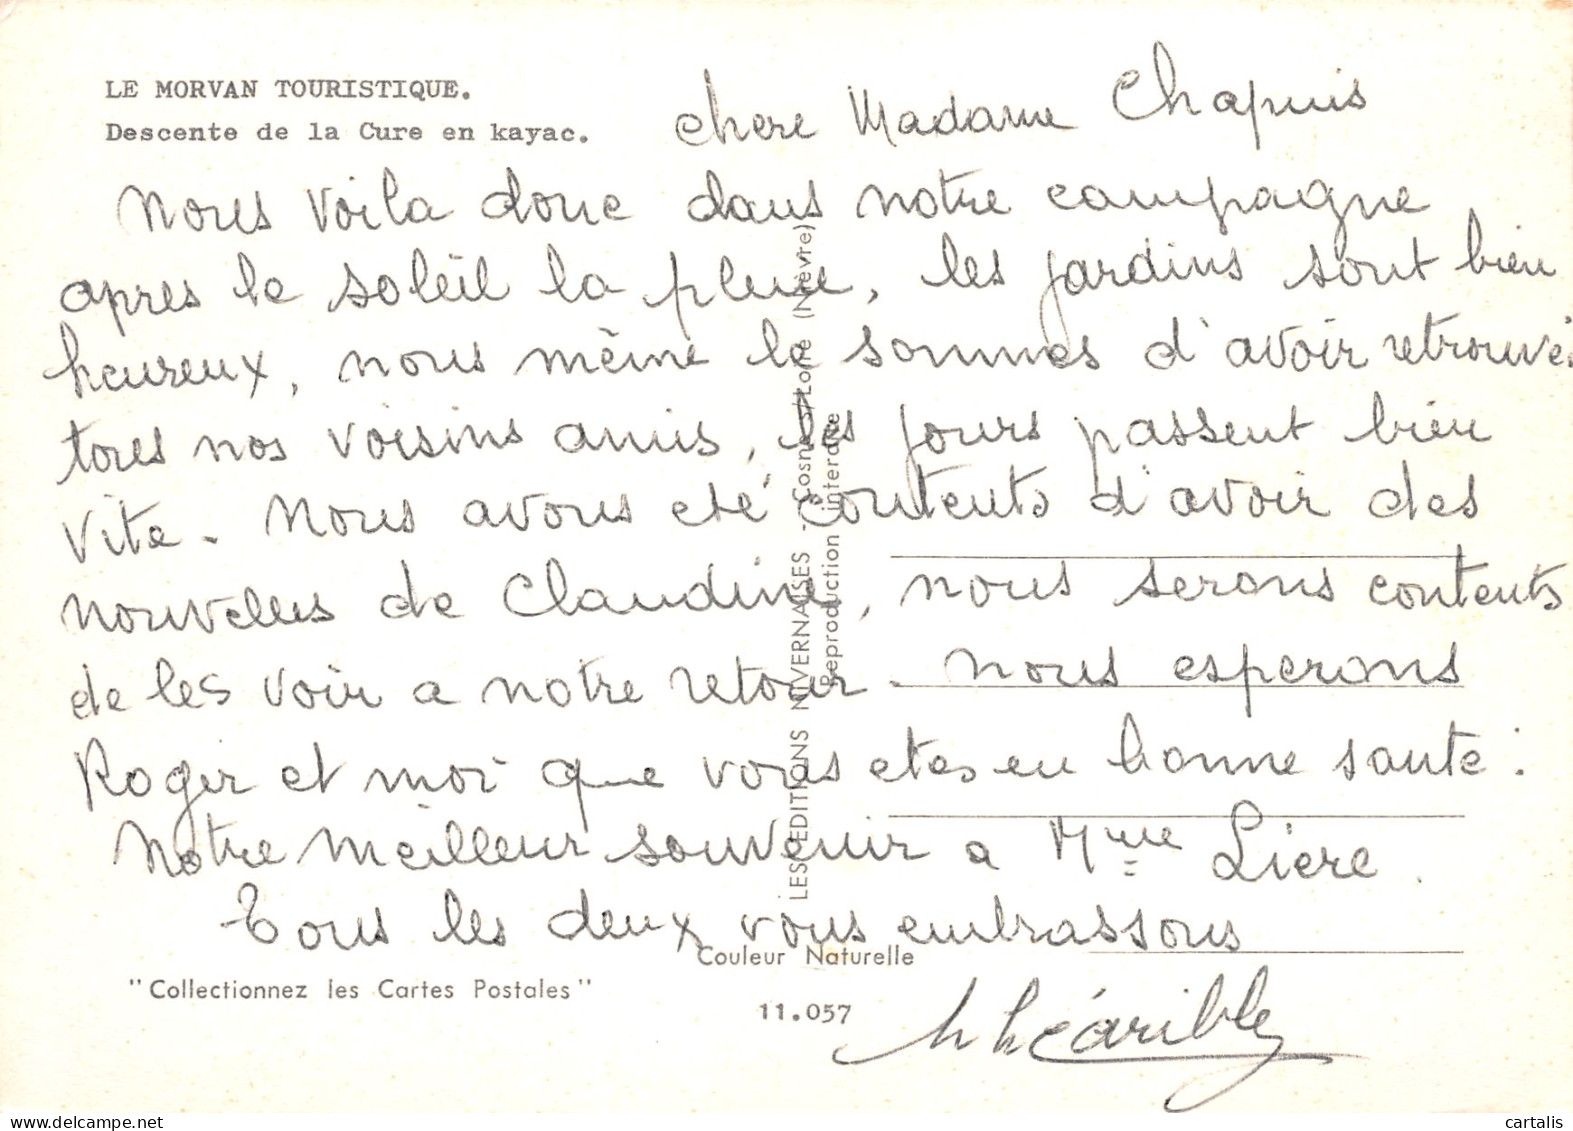 LE MORVAN TOURISTIQUE.
Descente de la Cure en kayac.
chere Madame Chapuis
Nous voila donc dans notre campagne
apres le soleil la pluie, les jardins sont bien
heureux, nous même le sommes d'avoir retrouvés
tous nos voisins amis, les jours passent bien
vite. Nous avons eté contents d'avoir des
nouvelles de Claudine, nous serons contents
de les voir a notre retour. Nous esperons
Roger et moi que vous etes en bonne santé.
Notre meilleur souvenir a Mme Liere.
Tous les deux vous embrassons
LES EDITIONS NIVERNAISES - Cosne s/Loire (Nièvre)
Reproduction interdite
Couleur Naturelle
"Collectionnez les Cartes Postales"
11.057
cartalis